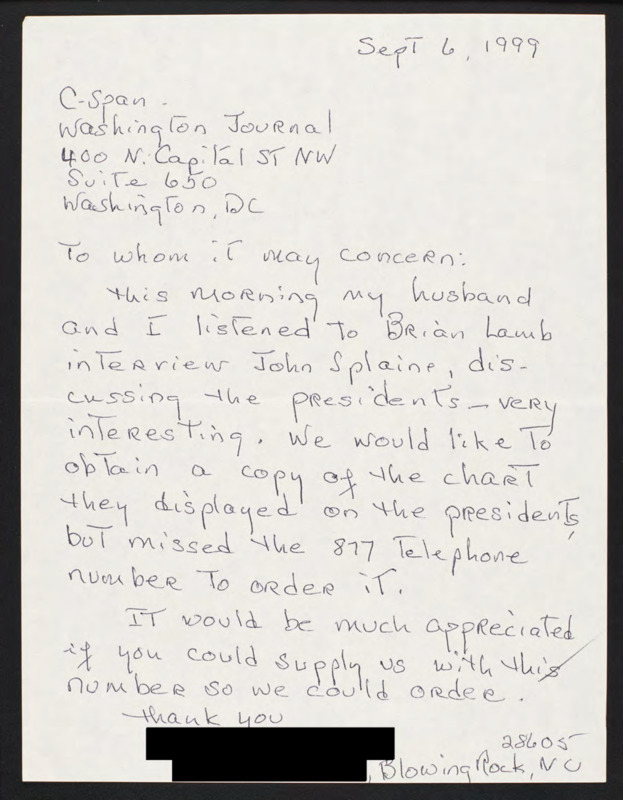 Sept 6, 1999
C-Span -
Washington Journal
400 N. Capital ST NW
Suite 650
Washington, DC
To whom it may concern:
this morning my husband
and I listened to Brian Lamb
interview John Splaine, dis-
cussing the presidents - very
interesting. We would like to
obtain a copy of the chart
they displayed on the presidents,
but missed the 877 telephone
number to order it.
It would be much appreciated
if you could supply us with this
number so we could order.
thank you
28605
, Blowing Rock, NC